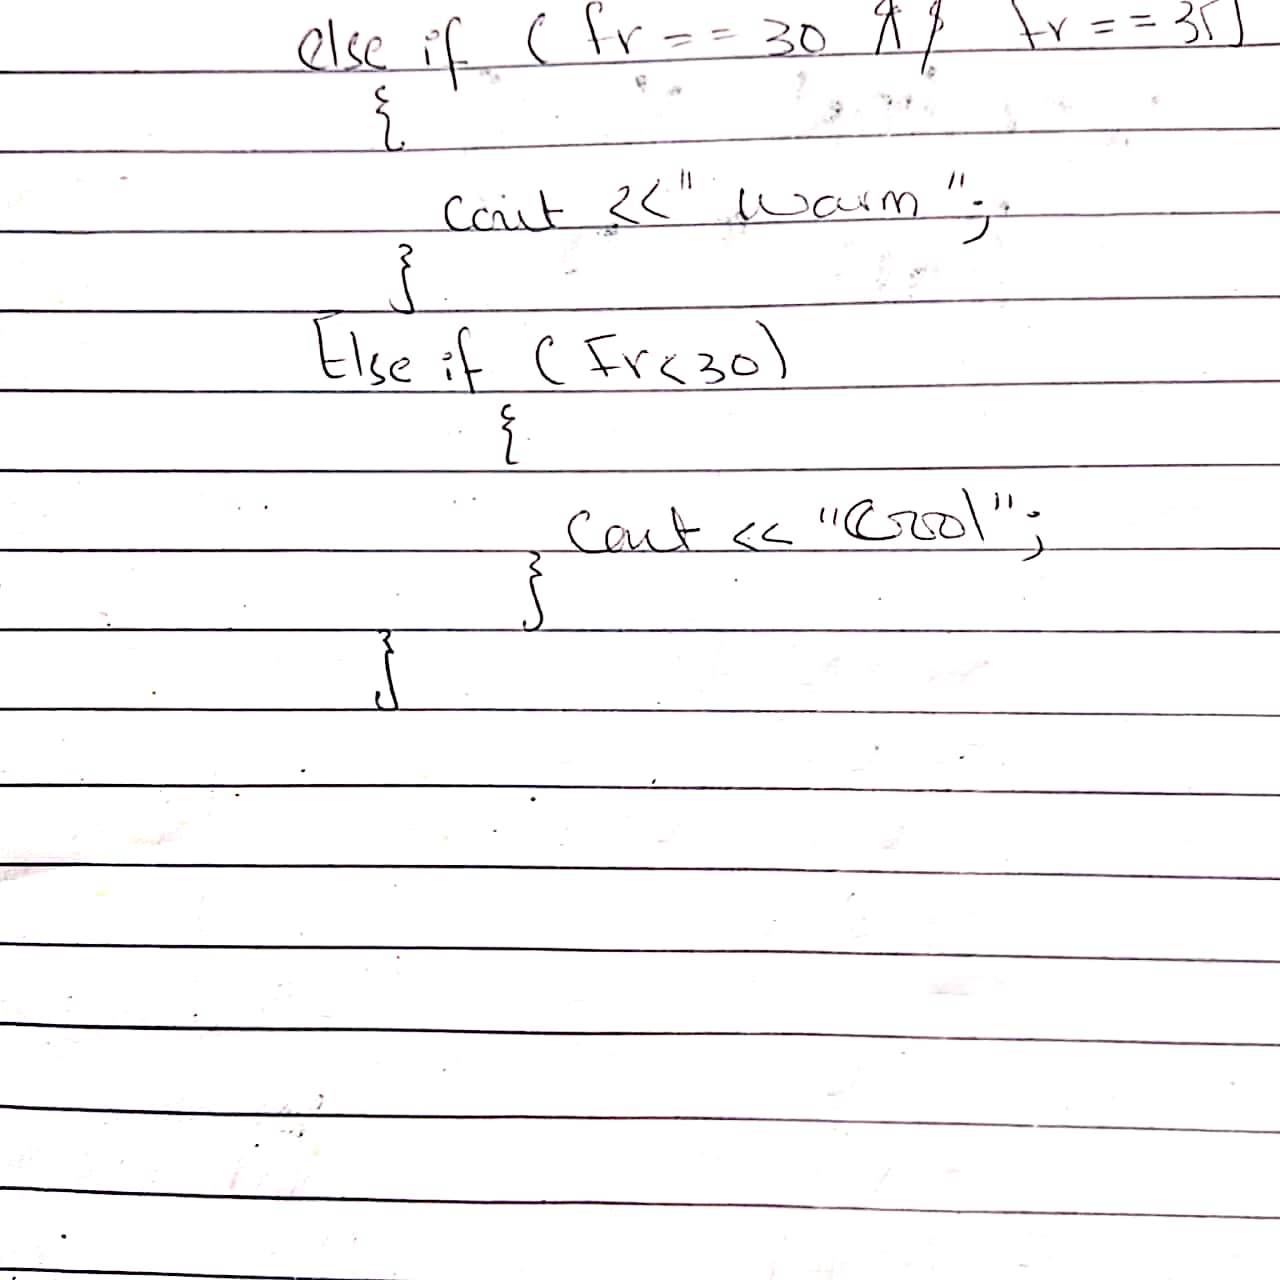 else if ( fr == 30 && fr == 35)
{
cout << " warm ";
}
Else if ( Fr<30)
{
Cout << "Cool";
}
}